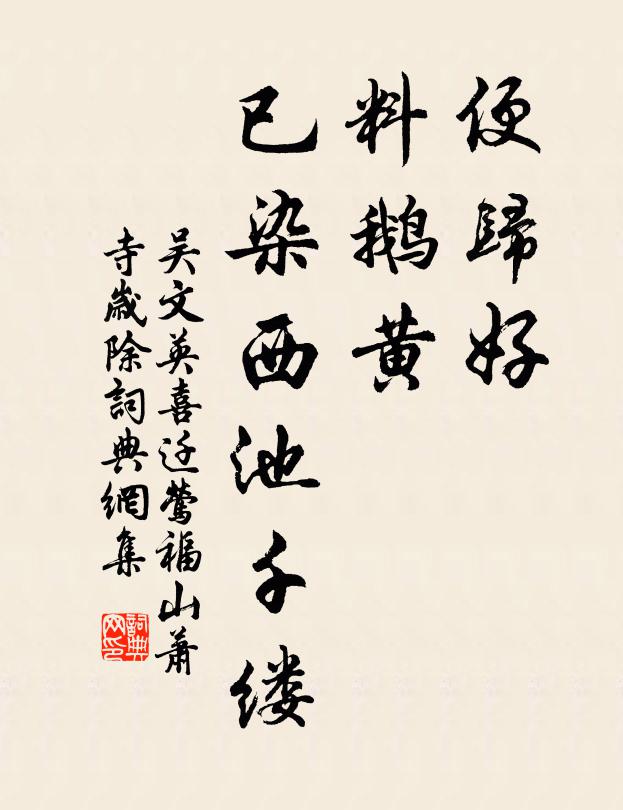 便歸好
料鵝黄
已染西池千缕
吴文英喜迁鶯福山萧
寺歲除詞典網集
詞典
网印